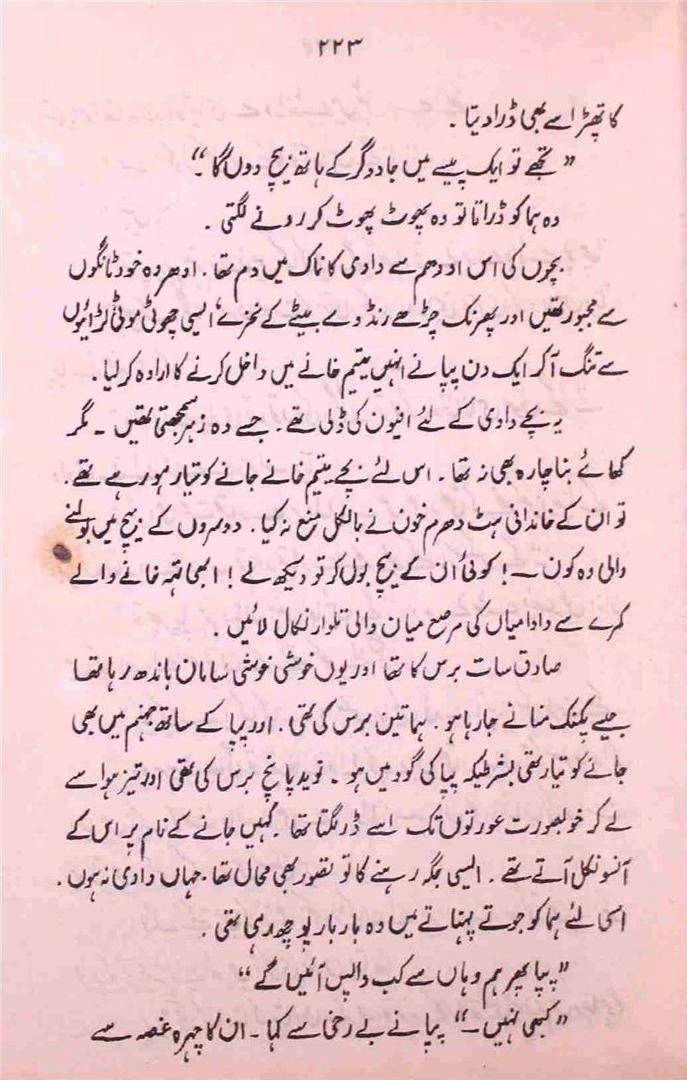 ۲۲۳
کا تھپڑ اسے بھی ڈرا دیتا ۔
” تجھے تو ایک پیسے میں جادوگر کے ہاتھ بیچ دوں گا ۔“
وہ ہما کو ڈراتا تو وہ پھوٹ پھوٹ کر رونے لگتی ۔
بچوں کی اس اودھم سے دادی کا ناک میں دم تھا ۔ ادھر وہ خود ٹانگوں
سے مجبور تھیں اور پھر نک چڑھے رنڈوے بیٹے کے نخرے، ایسی چھوٹی موٹی لڑائیوں
سے تنگ آکر ایک دن پپا نے انہیں یتیم خانے میں داخل کرنے کا ارادہ کر لیا ۔
یہ بچے دادی کے لئے افیون کی ڈلی تھے ۔ جسے وہ زہر سمجھتی تھیں ۔ مگر
کھائے بنا چارہ بھی نہ تھا ۔ اس لئے بچے یتیم خانے جانے کو تیار ہو رہے تھے ۔
تو ان کے خاندانی ہٹ دھرم خون نے بالکل منع نہ کیا ۔ دوسروں کے بیچ میں بولنے
والی وہ کون ــ ! کوئی ان کے بیچ بول کر تو دیکھ لے ! ابھی تہہ خانے والے
کمرے سے دادا میاں کی مرصع میان والی تلوار نکال لائیں ۔
صادق سات برس کا تھا اور یوں خوشی خوشی سامان باندھ رہا تھا
جیسے پکنک منانے جا رہا ہو ۔ ہما تین برس کی تھی ۔ اور پپا کے ساتھ جہنم میں بھی
جانے کو تیار تھی بشرطیکہ پپا کی گود میں ہو ۔ نوید پانچ برس کی تھی اور تیز ہوا سے
لے کر خوبصورت عورتوں تک اسے ڈر لگتا تھا ۔ کہیں جانے کے نام پر اس کے
آنسو نکل آتے تھے ۔ ایسی جگہ رہنے کا تو تصور بھی محال تھا ۔ جہاں دادی نہ ہوں ۔
اسی لئے ہما کو جوتے پہناتے میں وہ بار بار پوچھ رہی تھی ۔
” پپا پھر ہم وہاں سے کب واپس آئیں گے “
” کبھی نہیں ــ “ پپا نے بے رخی سے کہا ۔ ان کا چہرہ غصہ سے